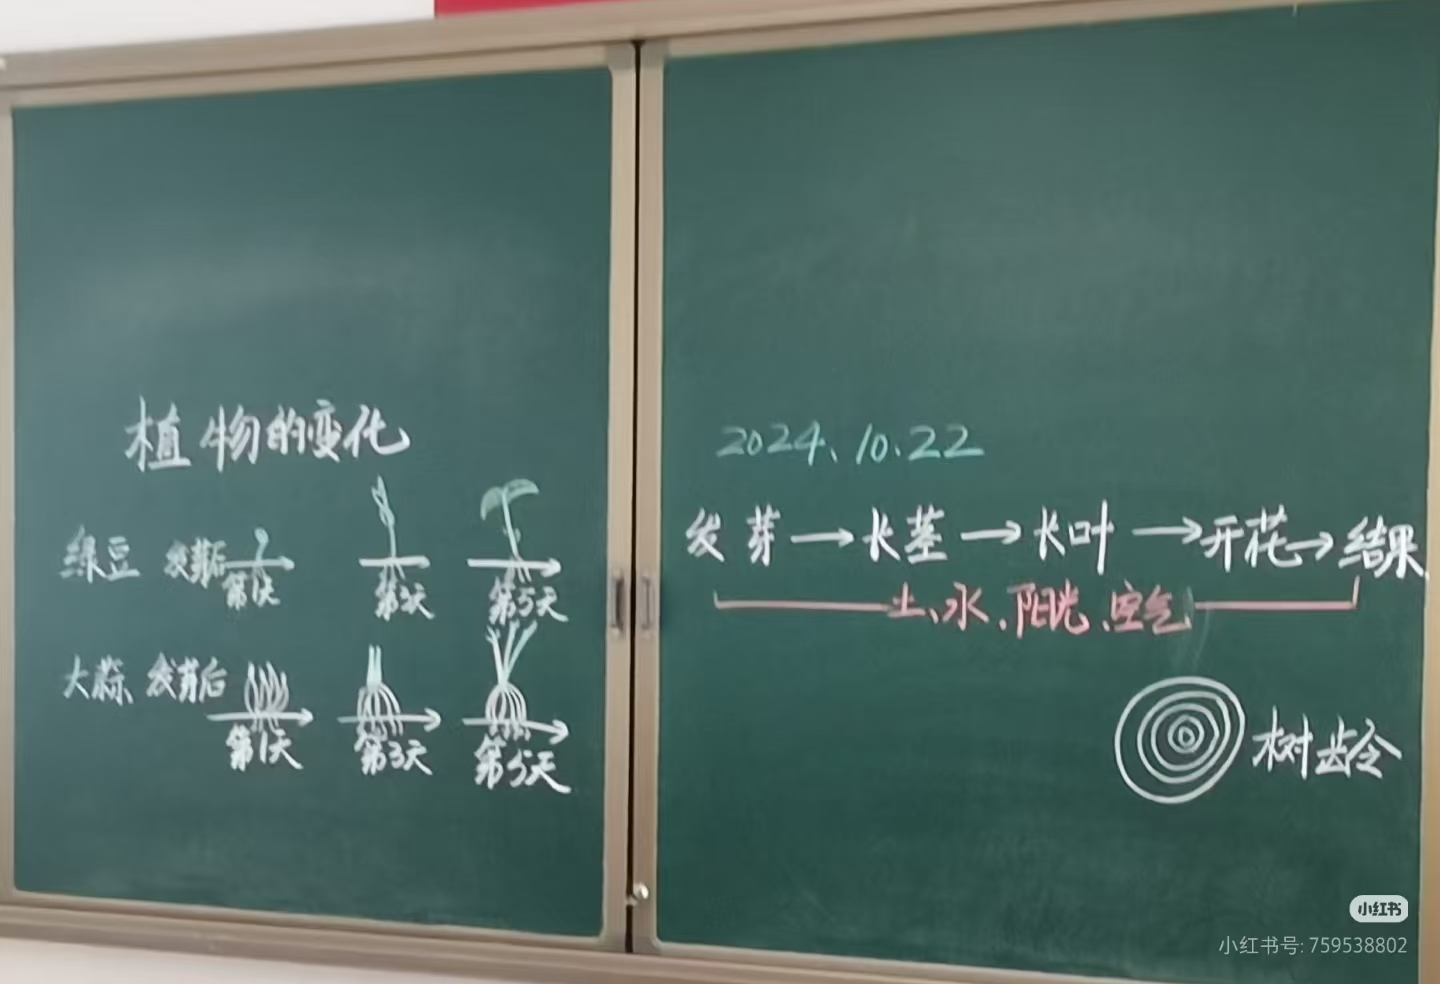 植物的变化
绿豆 发芽后
第1天 第3天 第5天
大蒜 发芽后
第1天 第3天 第5天
2024、10.22
发芽→长茎→长叶→开花→结果
土、水、阳光、空气
树龄
小红书
小红书号: 759538802